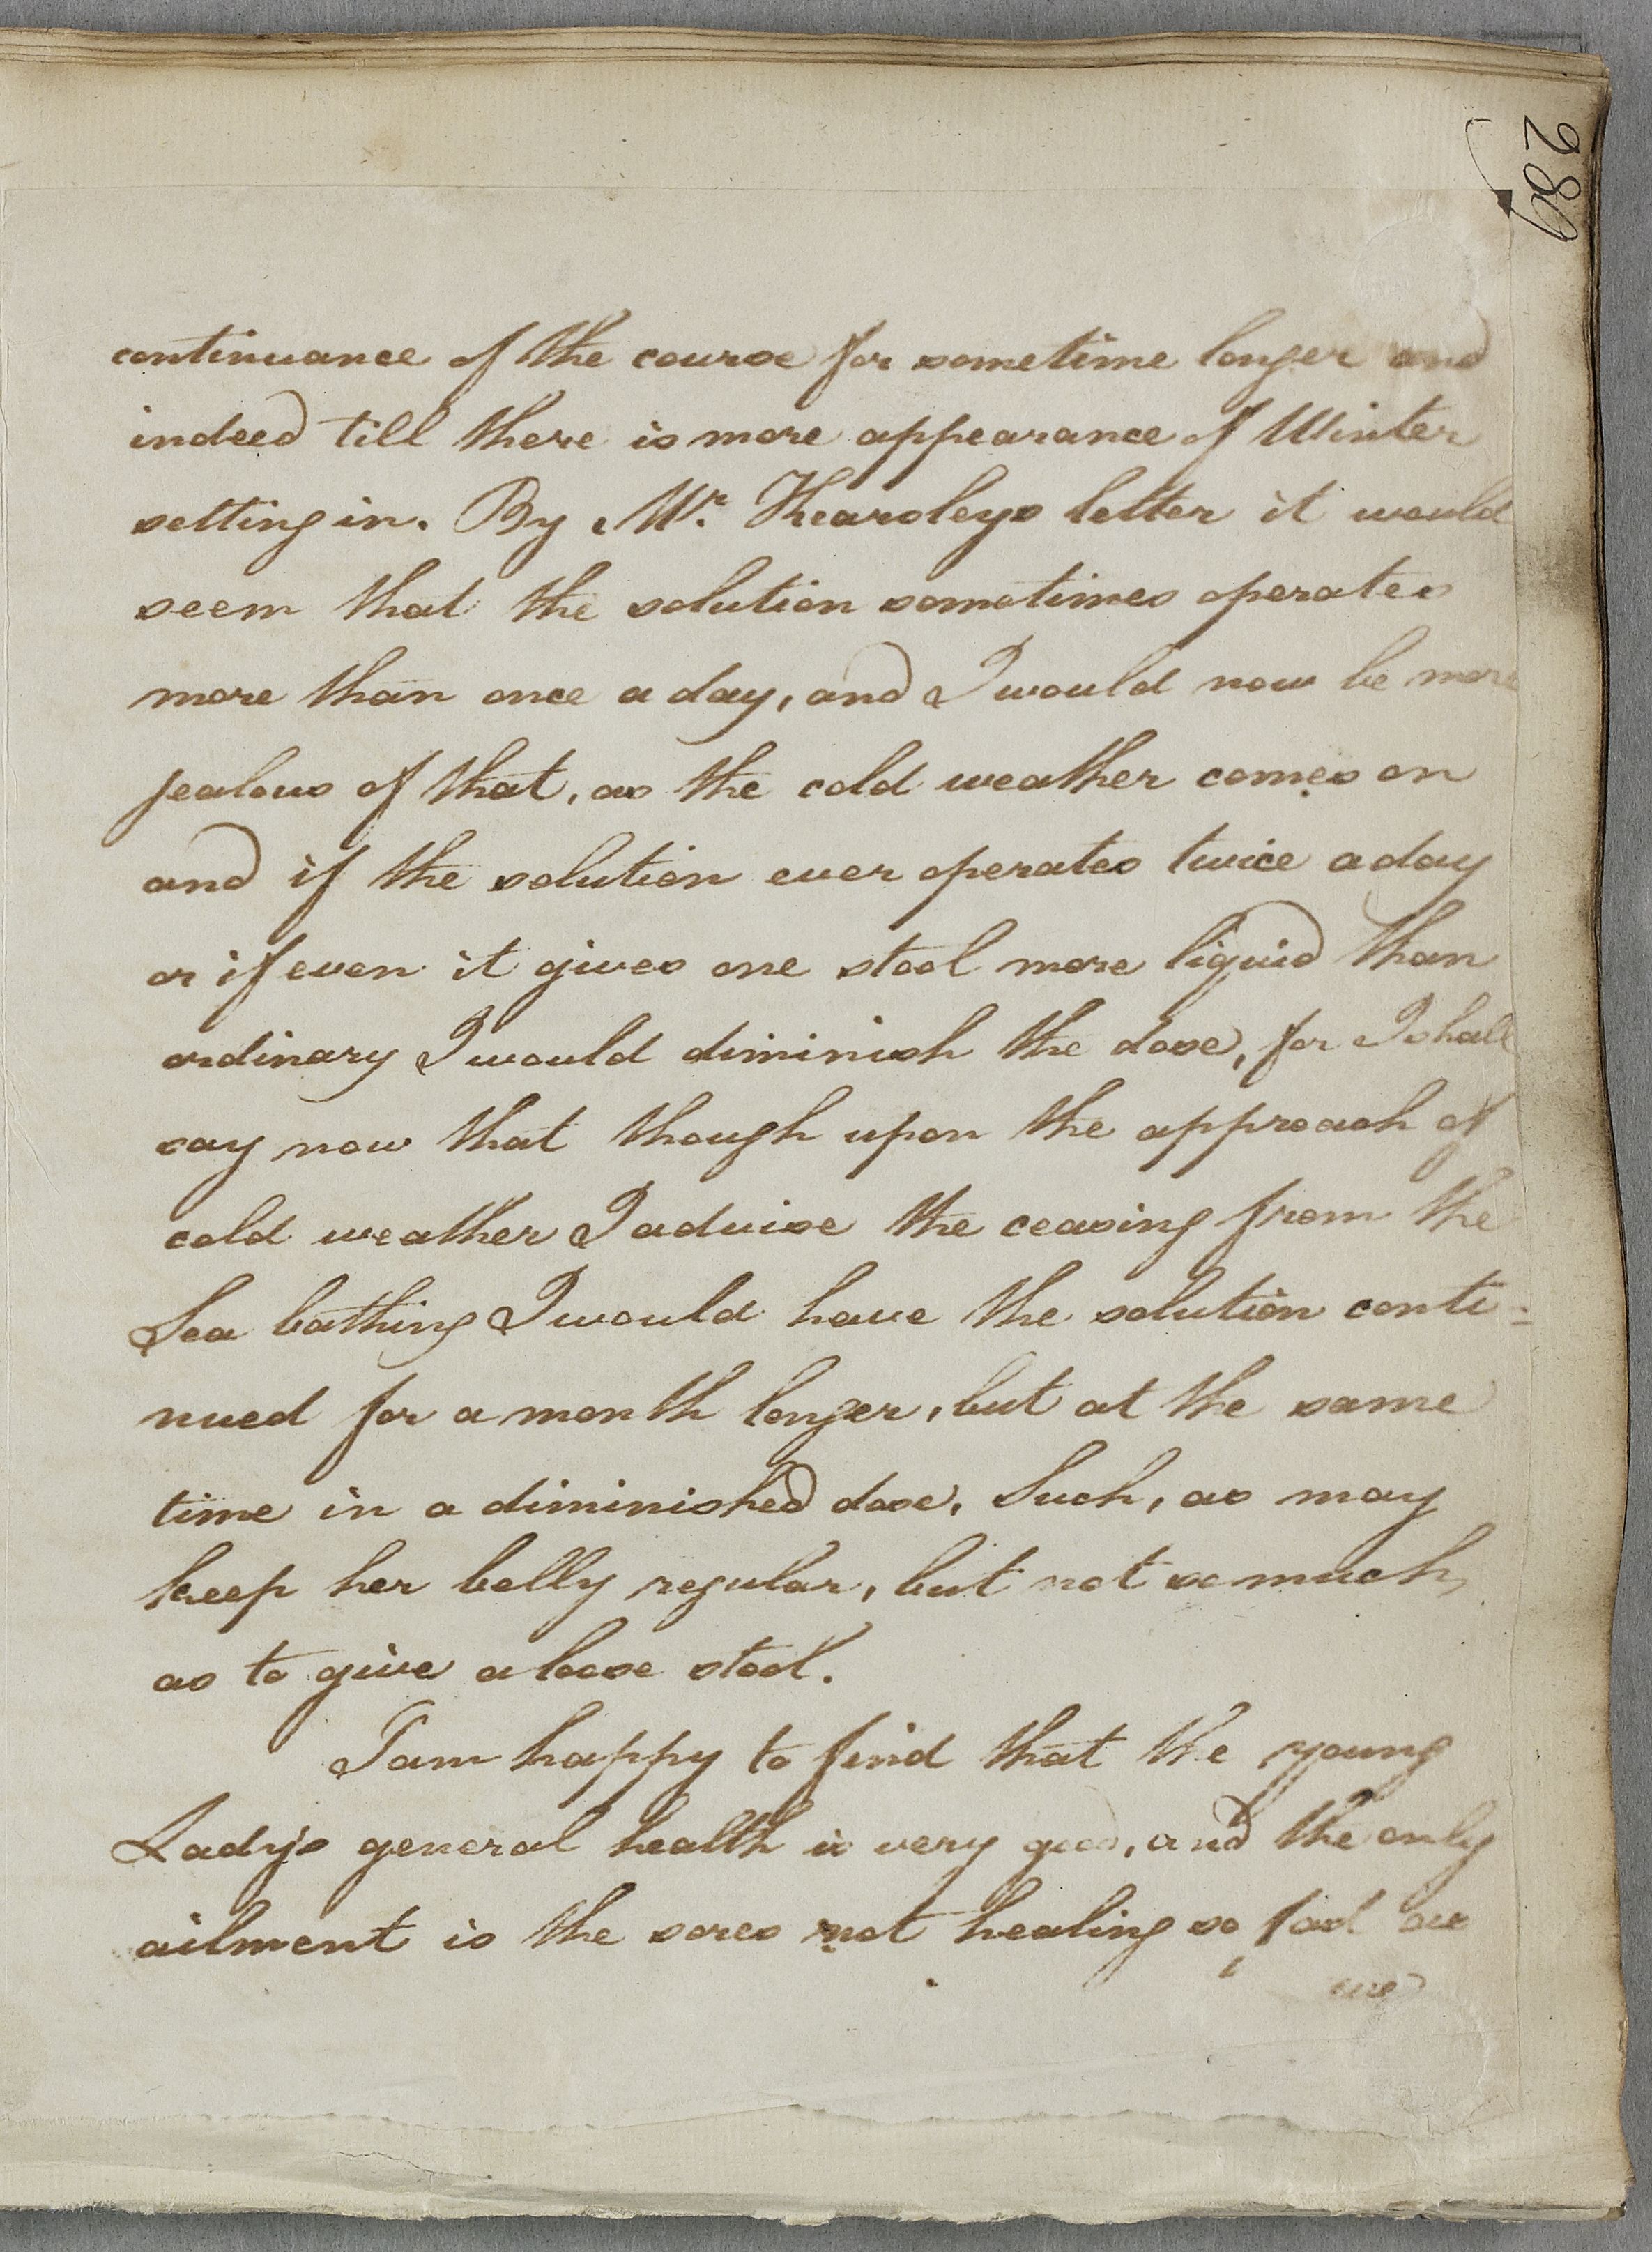 289
continuance of the course for sometime longer and
indeed till there is more appearance of Winter
setting in. By Mr. Keardleys letter it would
seem that the solution sometimes operates
more than once a day, and I would now be more
jealous of that, as the cold weather comes on
and if the solution ever operates twice a day
or if even it gives one stool more liquid than
ordinary I would diminish the dose, for I shall
say now that though upon the approach of
cold weather I advise the ceasing from the
Sea bathing I would have the solution conti=
nued for a month longer, but at the same
time in a diminished dose, Such, as may
keep her belly regular, but not so much,
as to give a loose stool.
I am happy to find that the young
Ladys general health is very good, and the only
ailment is the sores not healing so fast as
we